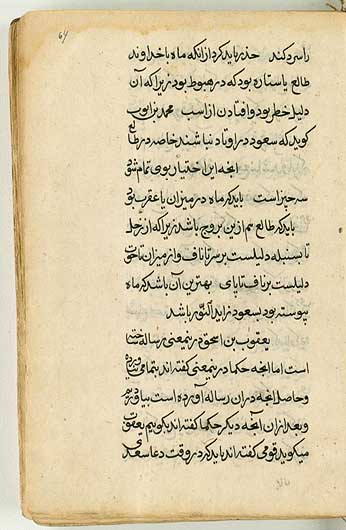 64
را سرد کند حذر باید کرد از انکه ماه با خداوند
طالع یا ستاره بود که در هبوط بود زیرا که آن
دلیل خطر بود و افتادن از اسب محمد بن ایوب
کوید که سعود در اوتاد نباشند خاصه در طالع
انچه این اختیار بوی تمام شود
سه چیز است باید که ماه در میزان یا عقرب بود
باید که طالع هم ازین بروج باشد زیرا که از حمل
تا سنبله دلیلست بر سر تا ناف و از میزان تا حوت
دلیلست بر ناف تا پای بهترین آن باشد که ماه
پیوسته بود بسعود زاید النور باشد
یعقوب بن اسحق درینمعنی رساله ساخته
است اما انچه حکما درینمعنی کفته اند بتمامی
و حاصل انچه در ان رساله آورده است بیاوردیم
و بعد از ان آنچه دیگر حکما کفته اند بکوییم یعقوب
میکوید قومی کفته اند باید کرد در وقت دعا سعدی